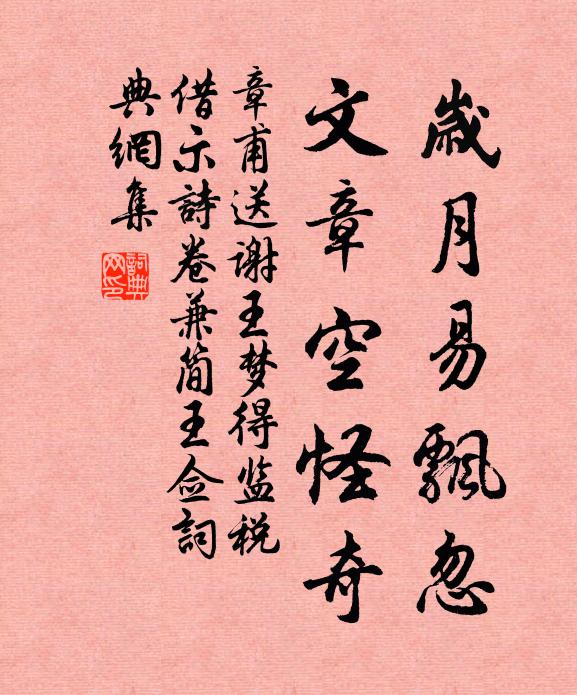 歲月易飄忽
文章空怪奇
章甫送谢王梦得监税
借示詩卷兼简王佥詞
典網集
詞典网印